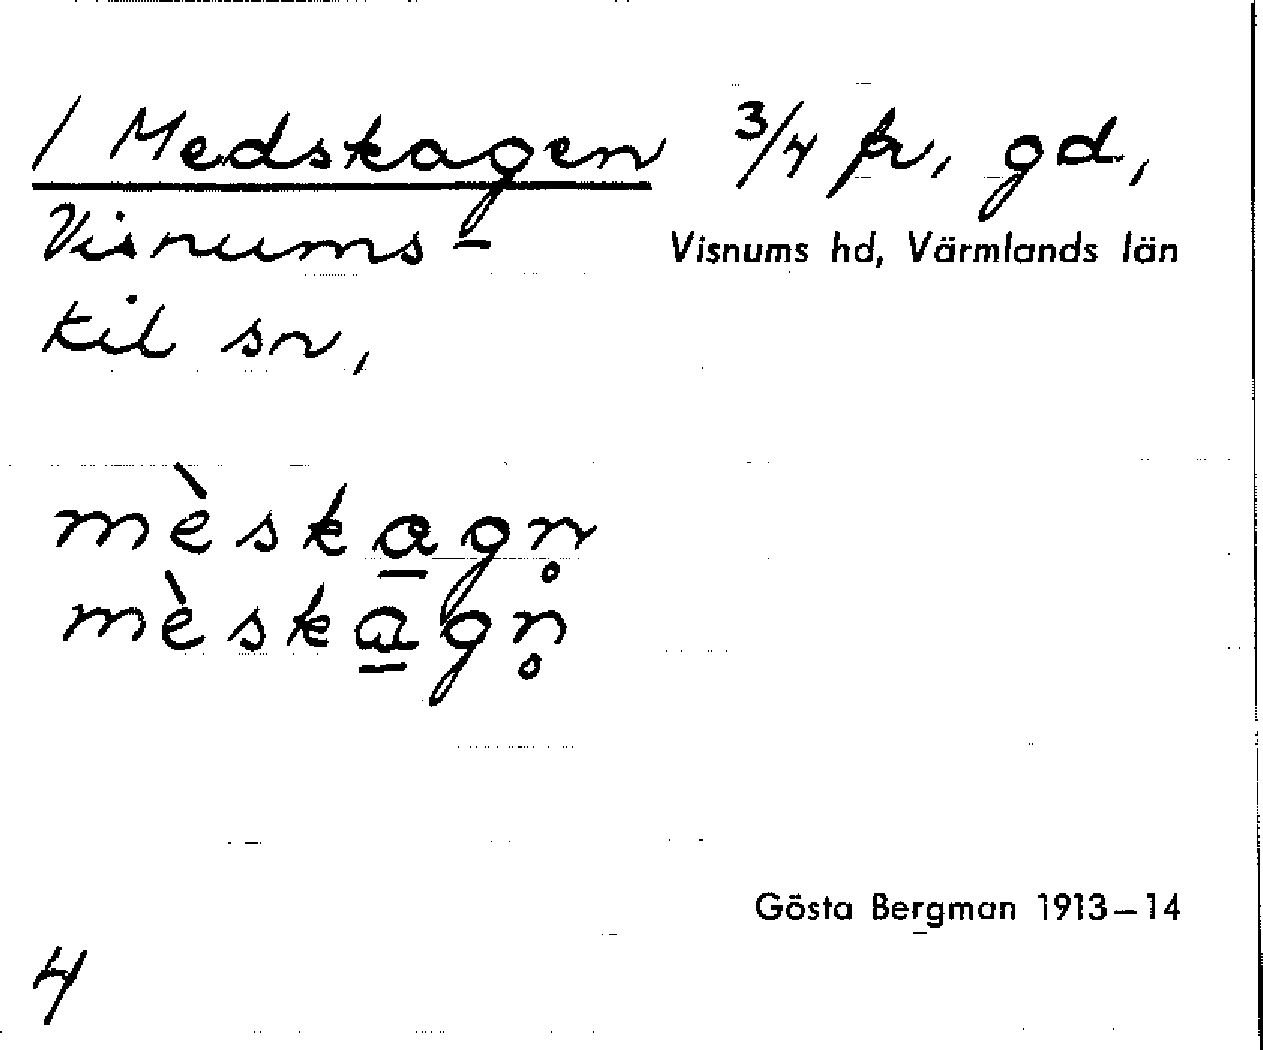 / Medskagen 3/4 fr, gd,
Visnums-
Visnums hd, Värmlands län
kil sn,
mèska̲gn̥
mèska̲gn̥
Gösta Bergman 1913–14
4